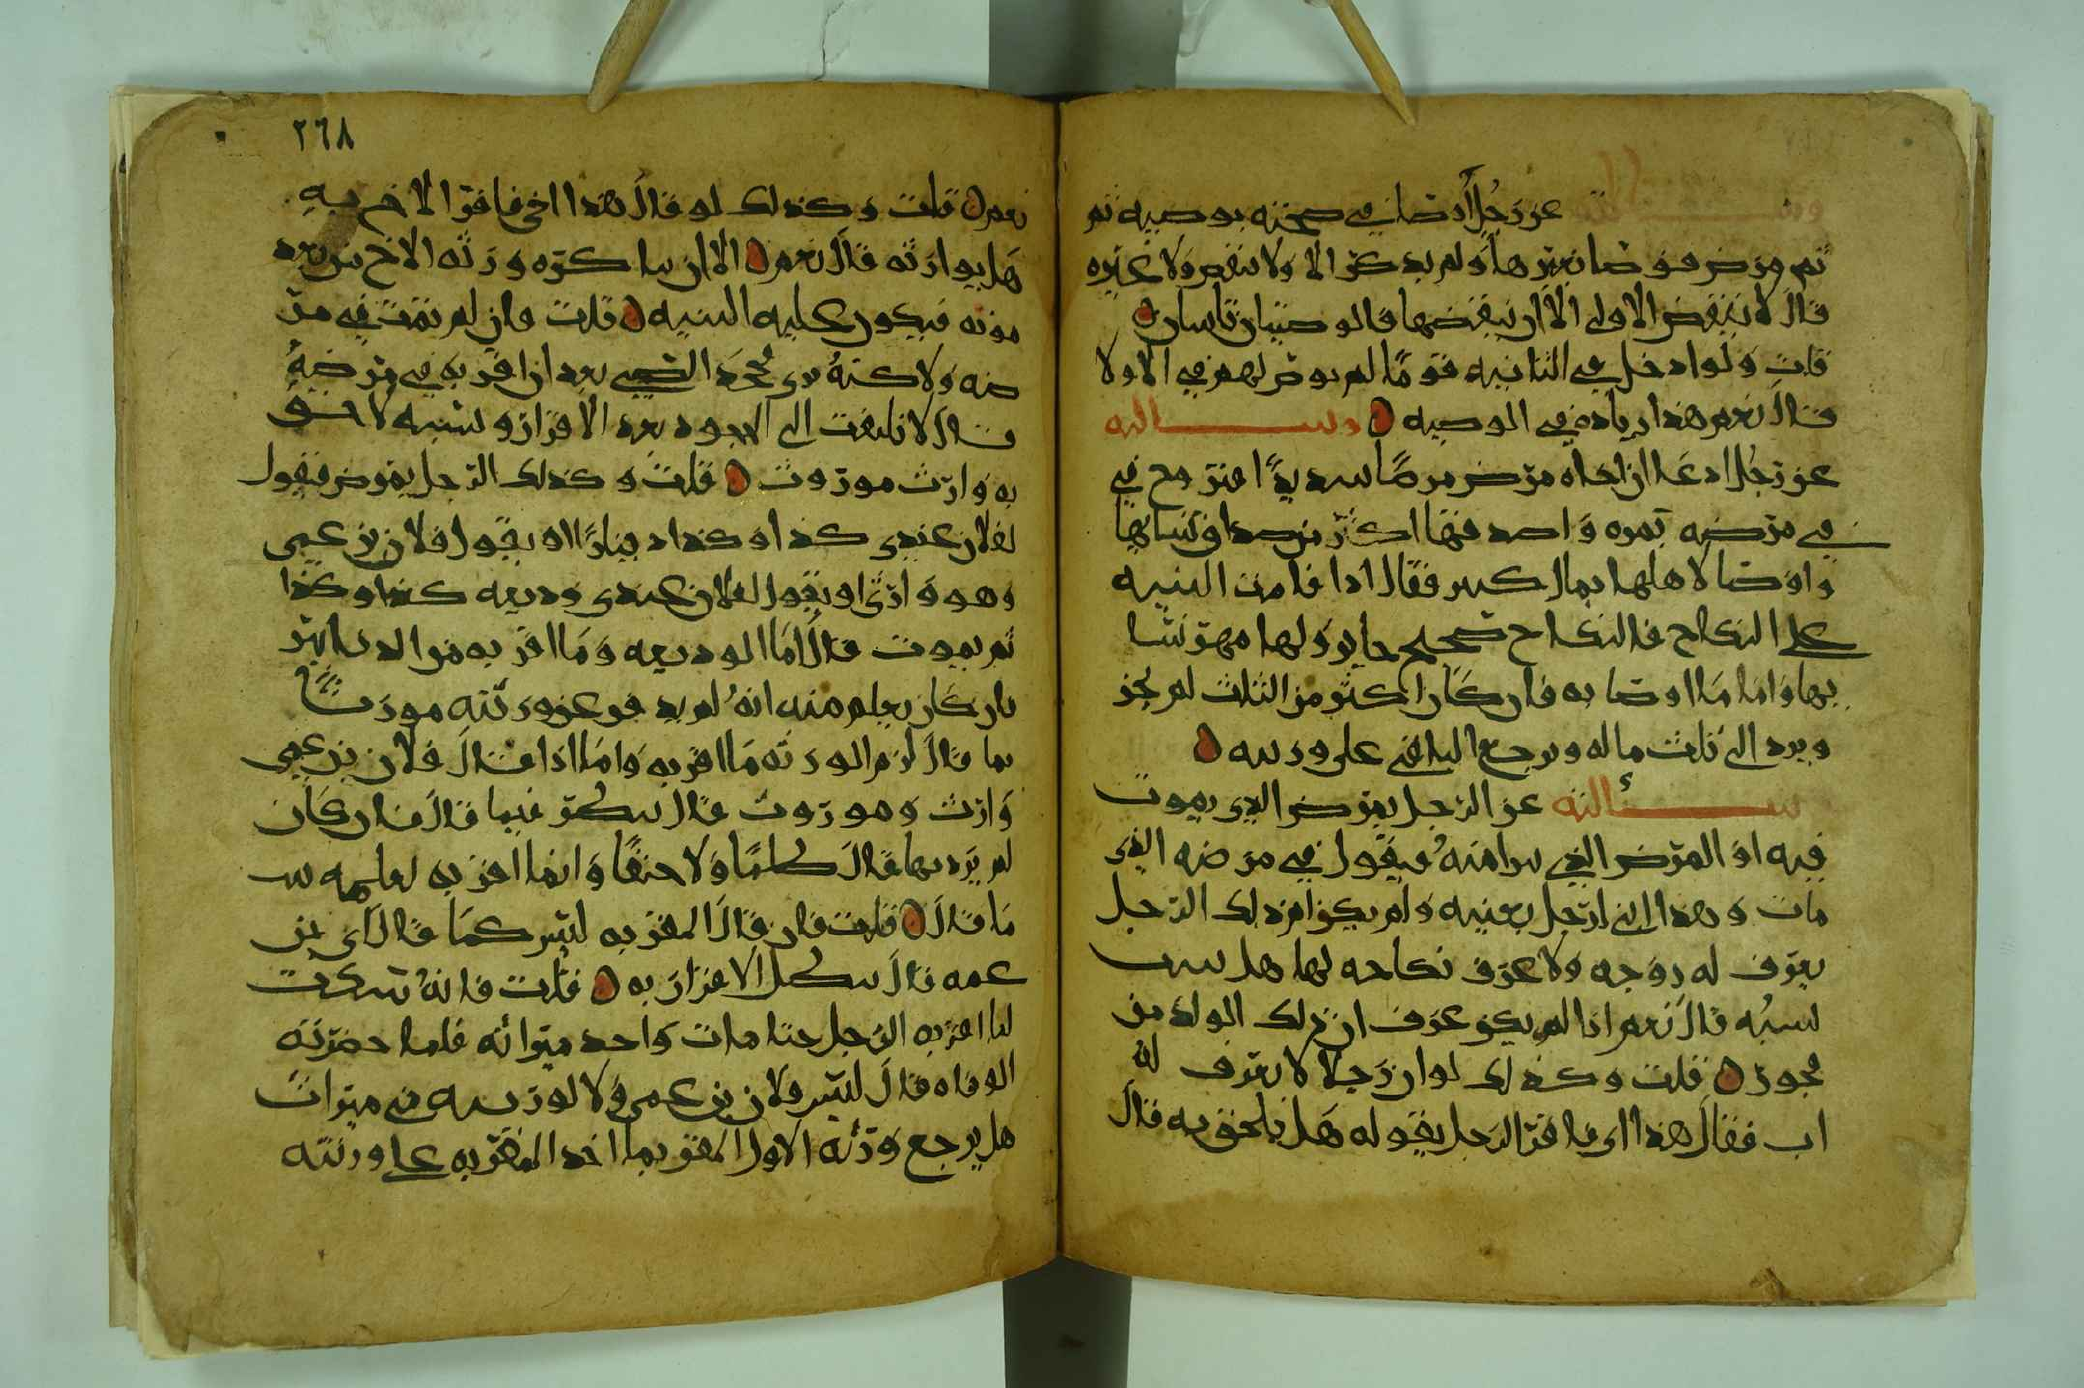 وسالته عن رجل أوصا في صحته بوصيه ثم
ثم مرض فوصا بغيرها ولم يذكر الا ولا بنقص ولا غيره
قال لا ننقض الاولى الا ان ينقضها فالوصيتان ثابتتان
قلت ولو ادخل في الثانيه قومًا لم يوص لهم في الاولا
قال نعم هذا زياده في الوصيه وسالته
عن رجل ادعا ان اخاه مرض مرضًا شديدًا فتزوج في
في مرضه بمره واصدقها اكثر من صداق نسايها
واوصا لاهلها بمال كثير فقال اذا قامت البنيه
على النكاح فالنكاح صحيح جايز ولها مهر نسا
يها واما ما اوصا به فان كان اكثر من الثلث لم يجز
ويرد الى ثلث ماله ويرجع الباقي على ورثته
سألته عن الرجل يمرض الذي يموت
فيه او المرض الذي برا منه فيقول في مرضه الذي
مات وهذا ابني لرجل بعينه ولم يكن لذلك الرجل
يعرف له زوجه ولا عرف نكاحه لها هل يثبت
نسبه قال نعم اذا لم يكن عرف ان ذلك الولد من
فجور قلت وكذلك لو ان رجلا لا يعرف له
اب فقال هذا ابي فاقر الرجل بقوله هل يلحق به قال
٢٦٨
نعم قلت وكذلك لو قال هذا اخي فاقر الاخ به
هل يوارثه قال نعم الا ان يناكره ورثه الاخ من بعد
موته فيكون عليه البنيه قلت فان لم يمت في مر
ضه ولاكنه برى فجحد الصبي بعد ان اقر به في مرضه
قال لا نلتفت الى الجحود بعد الاقرار ونسبه لاحق
به وارث موروث قلت وكذلك الرجل يمرض فيقول
لفلان عندي كذا وكذا دينارًا او يقول فلان بن عمي
وهو وارثي او يقول لفلان عندي وديعه كذا وكذا
ثم يموت قال اما الوديعه وما اقر به من الدنانير
فان كان يعلم منه انه لم يدفع عن ورثته موروثًا
بما قال لزم الورثه ما اقر به واما اذا قال فلان بن عمي
وارث وموروث قال ينظر فيما قال فان كان
لم يرد بما قال ظلمًا ولا حنقًا وانما اقر به لعلمه ثبت
ما قال قلت فان قال المقر به ليس كما قال اي بن
عمه قال يبطل الاقرار به قلت فانه سكت
لما اقر به الرجل حتا مات واخذ ميراثه فلما حضرته
الوفاه قال ليس فلان بن عمي ولا لورثته في ميراث
هل يرجع ورثه الاول المقر بما اخذ المقر به على ورثته